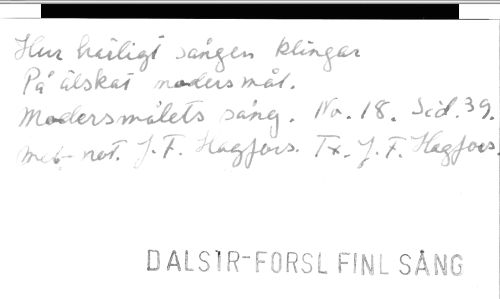 Hur härligt sången klingar
På älskat modersmål.
Modersmålets sång. No. 18. Sid. 39.
med not. J. F. Hagfors. Tx. J. F. Hagfors.
DALSTR-FORSL FINL SÅNG